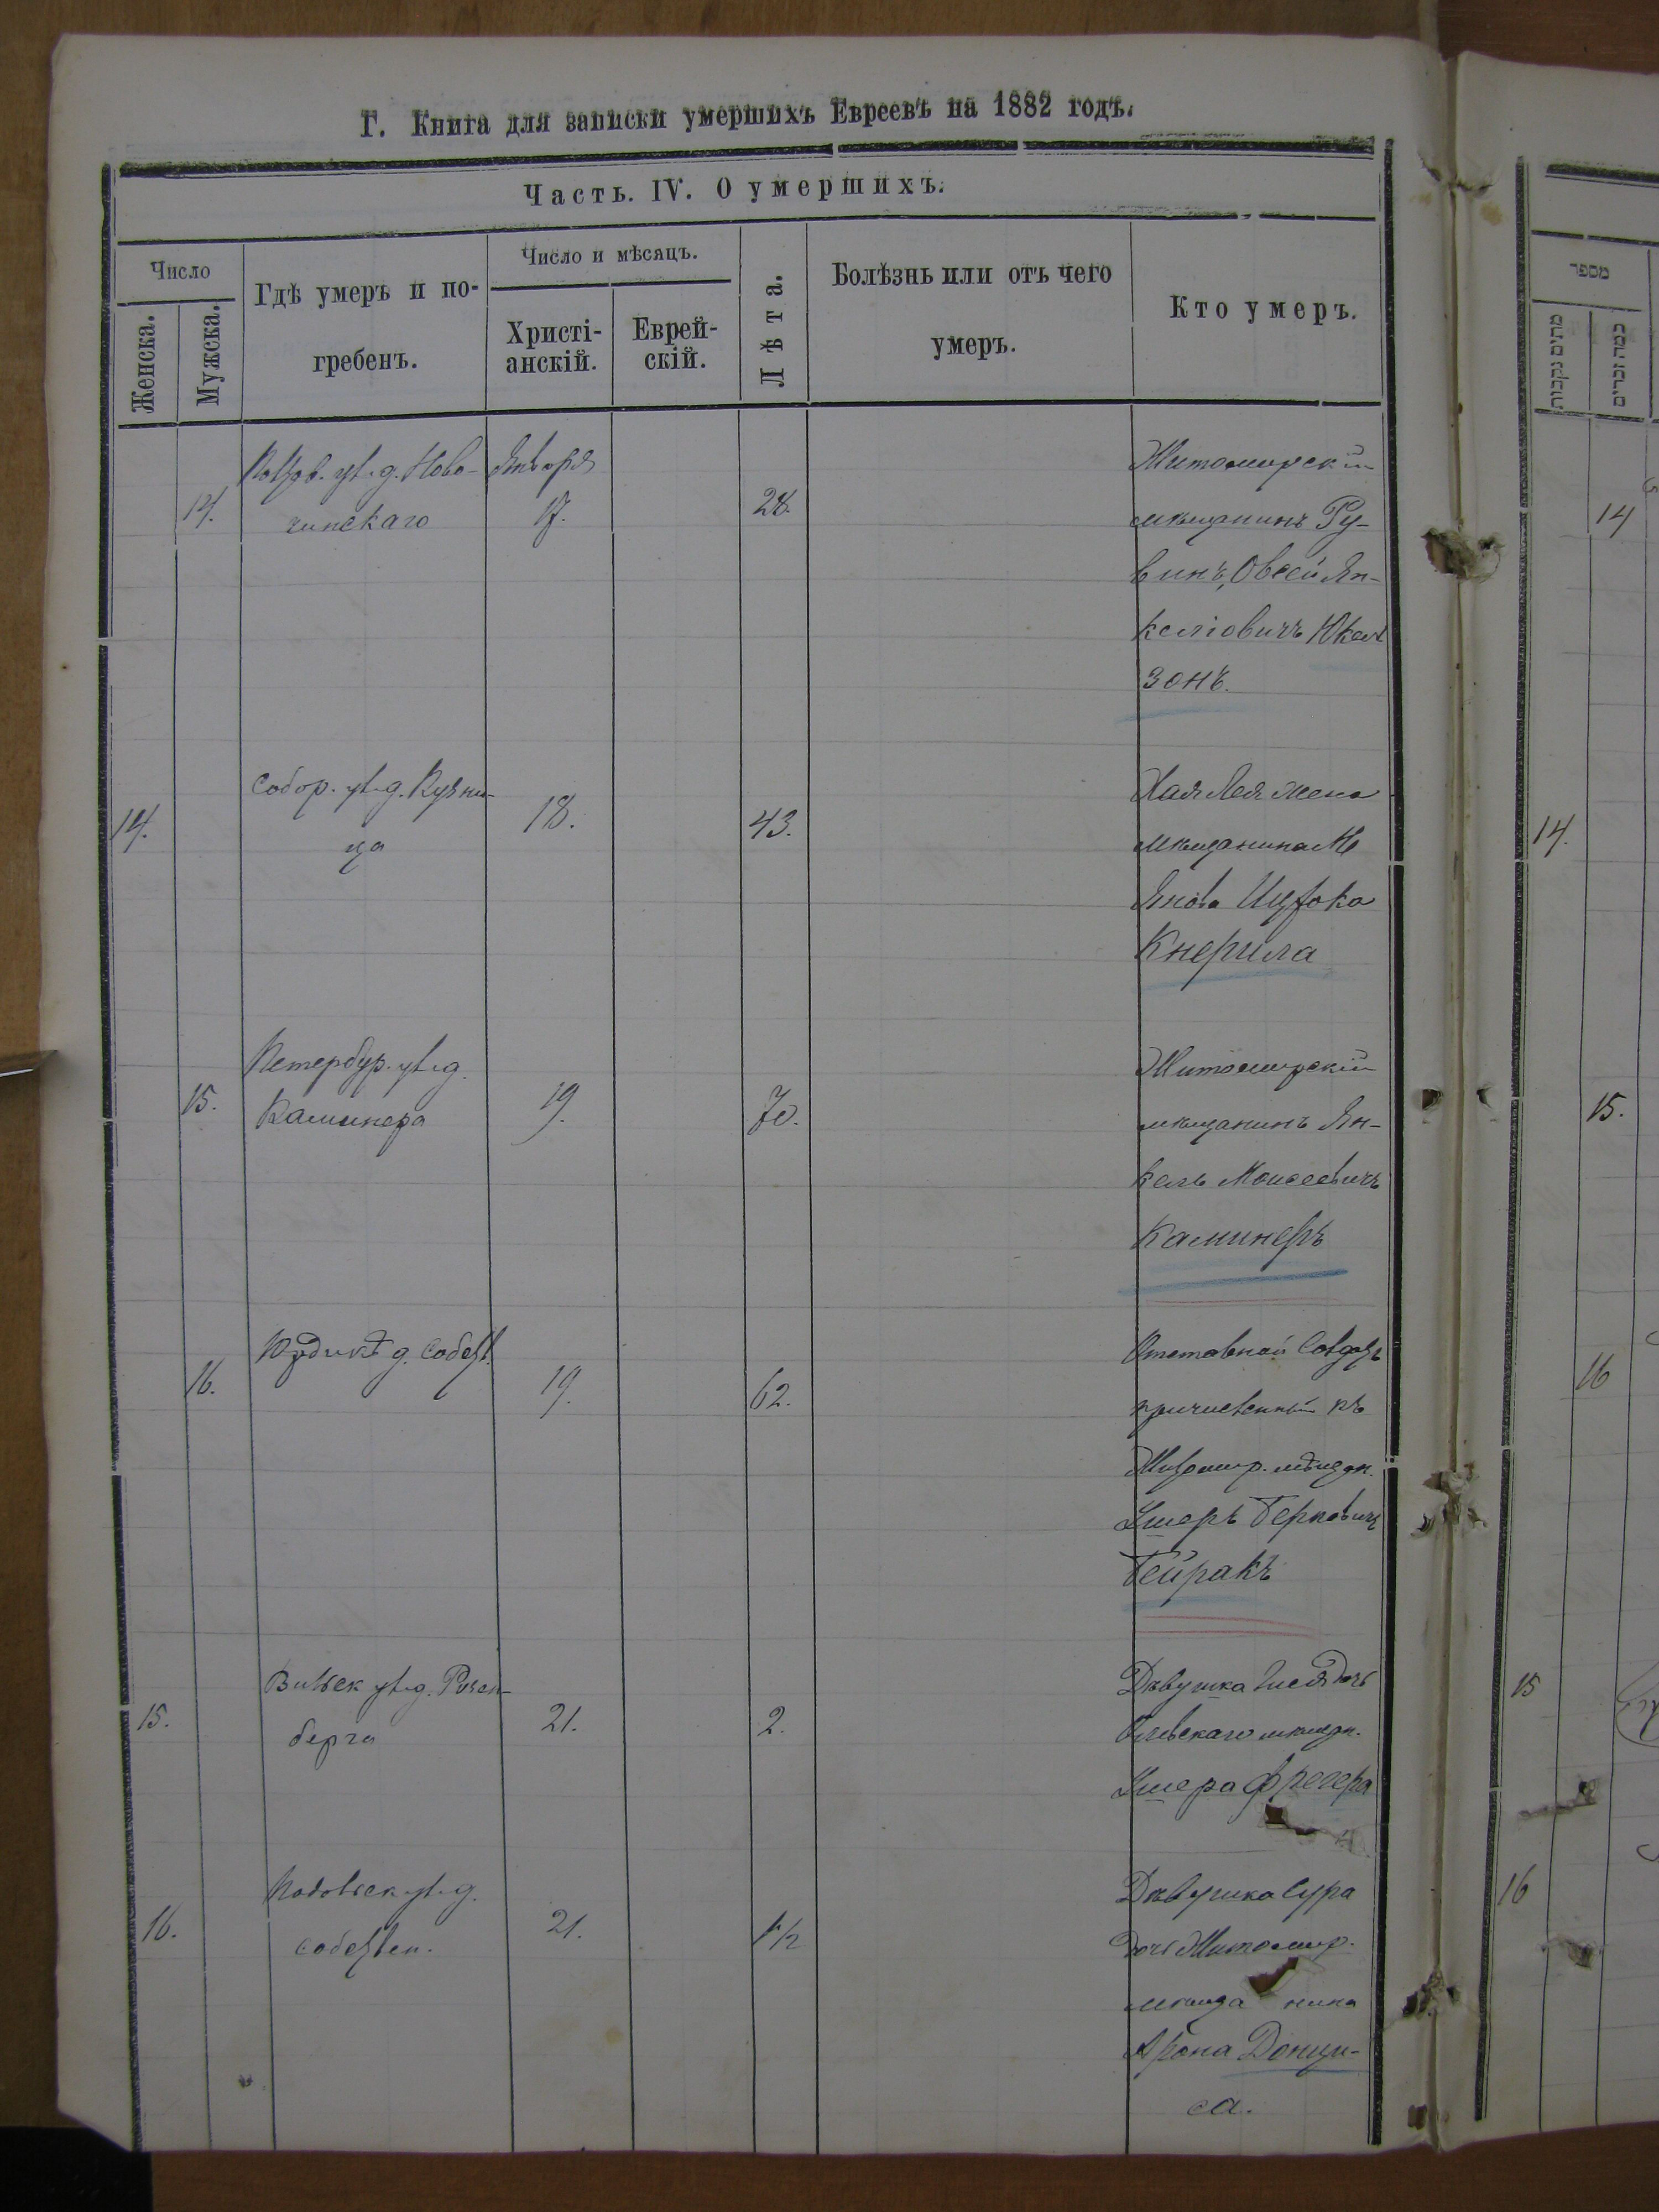 Г. Книга для записки умершихъ Евреевъ на 1882 годъ.
Часть. IV. О умершихъ.
Число
Женска.
Мужска.
Гдѣ умеръ и по-
гребенъ.
Число и мѣсяцъ.
Христі-
анскій.
Еврей-
скій.
Лѣта.
Болѣзнь или отъ чего
умеръ.
Кто умеръ.
מספר
14.
ул. д. Ново-
Января
17.
28.
Житомирскій
мѣщанинъ Ру-
винъ, Овсей Ян-
келіовичъ Юкель
зонъ.
14
14.
Собор. ул. д. Кузни-
ца
18.
43.
Хая Лея жена
мѣщанина М
Янова Ицхока
Кнерила
14.
15.
Петербур. ул. д.
Каминера
19.
70.
Житомирскій
мѣщанинъ Ян-
кель Моисеевичъ
Каминеръ
15.
16.
д. собст.
19.
62.
Отставной Солдатъ
причисленный къ
Житомир. мѣщан.
Умеръ Берковичъ
Бейракъ
16
15.
Вильск ул. д. Розен-
берга
21.
2.
Дѣвушка дочь
мѣщан.
15
16.
ул. д.
собствен.
21.
1/2
Дѣвушка Сура
дочь Житомир.
мѣщанина
Арона Донци-
са.
16